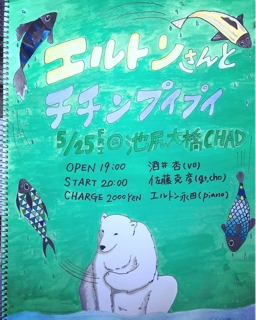 エルトンさんと
チチンプイプイ
5/25 @池尻大橋CHAD
OPEN 19:00 酒井杏(vo)
START 20:00 佐藤克彦(gt,cho)
CHARGE 2000YEN エルトン永田(piano)